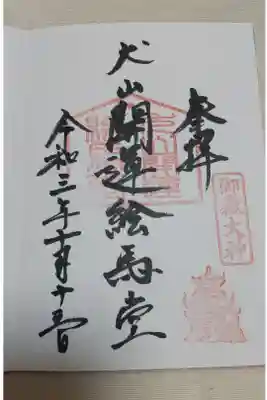 奉拝
犬山開運絵馬堂
令和三年十一月十五日
御嶽大神